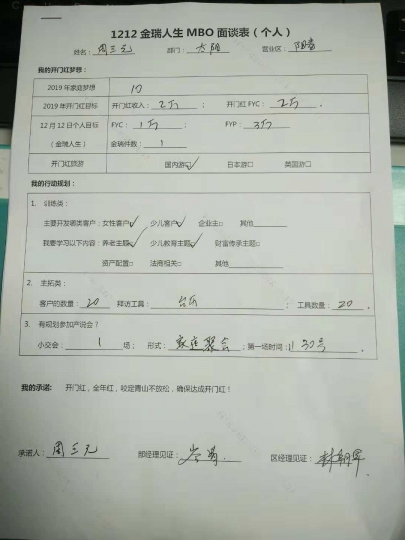 1212 金瑞人生 MBO 面谈表（个人）
姓名：周三元 部门：太阳 营业区：阳春
我的开门红梦想：
2019 年家庭梦想 10
2019 年开门红目标 开门红收入：2万； 开门红 FYC：2万。
12 月 12 日个人目标 FYC：1万 FYP：3万
（金瑞人生） 金瑞件数：1
开门红旅游 国内游□✓ 日本游□ 美国游□
我的行动规划：
1. 训练类：
主要开发哪类客户：女性客户✓ 少儿客户✓ 企业主□ 其他
我要学习以下内容：养老主题✓ 少儿教育主题✓ 财富传承主题□
资产配置□ 法商相关□ 其他
2. 主拓类：
客户的数量：20 拜访工具：台历；工具数量：20。
3. 有规划参加产说会？
小交会：1 场； 形式：家庭聚会；第一场时间：11.30号
我的承诺： 开门红，全年红，咬定青山不放松，确保达成开门红！
承诺人：周三元 部经理见证： 区经理见证：